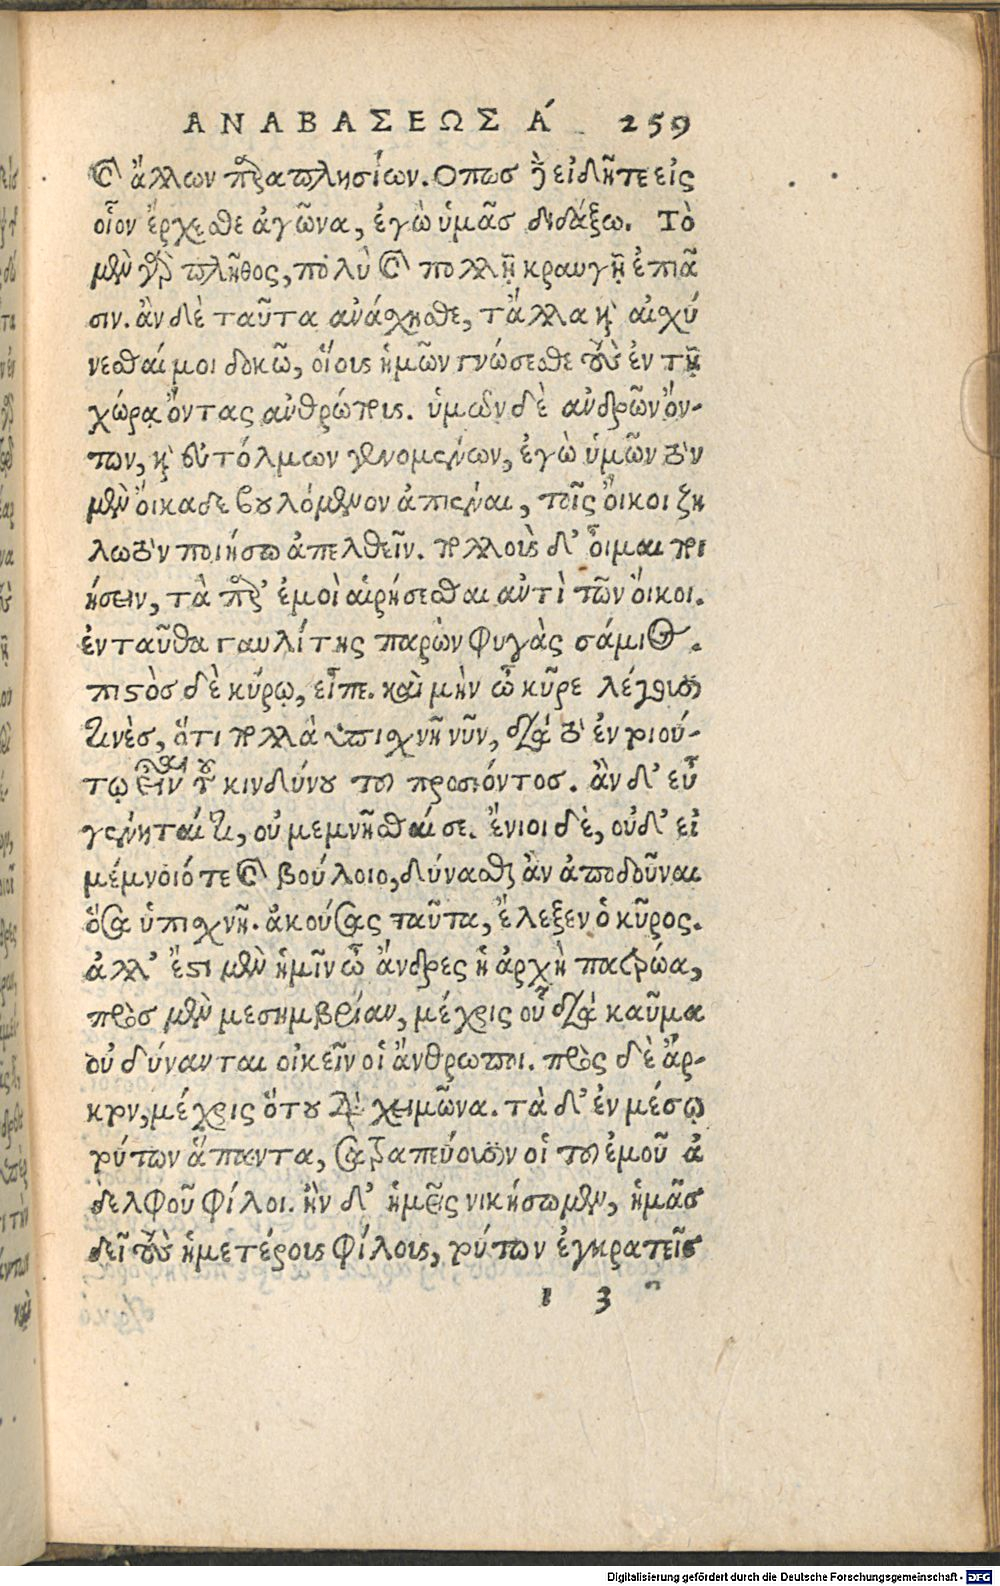 ΑΝΑΒΑΣΕΩΣ Α΄ 259
καὶ ἄλλων πολλαπλησίων. Οπως δὲ εἰδῆτε εἰς
οἷον ἔρχεσθε ἀγῶνα, ἐγὼ ὑμᾶς διδάξω. Τὸ
μὲν γὰρ πλῆθος, πολὺ καὶ πολλῇ κραυγῇ ἐπιᾶ
σιν. ἂν δὲ ταῦτα ἀνάσχησθε, τἄλλα καὶ αἰσχύ
νεσθαί μοι δοκῶ, οἵους ἡμῶν γνώσεσθε τοὺς ἐν τῇ
χώρᾳ ὄντας ἀνθρώπους. ὑμῶν δὲ ἀνδρῶν ὄν-
των, καὶ εὐτόλμων γενομένων, ἐγὼ ὑμῶν τὸν
μὲν οἴκαδε βουλόμενον ἀπιέναι, τοῖς οἴκοι ζη
λωτὸν ποιήσω ἀπελθεῖν. πολλοὺς δ' οἶμαι ποι
ήσειν, τὰ παρ' ἐμοὶ αἱρήσεσθαι ἀντὶ τῶν οἴκοι.
ἐνταῦθα γαυλίτης παρὼν φυγὰς σάμιος.
πιστὸς δὲ κύρῳ, εἶπε. καὶ μὴν ὦ κῦρε λέγουσί
τινὲς, ὅτι πολλὰ ὑπισχνῇ νῦν, διὰ τὸ ἐν τοιού-
τῳ εἶναι τοῦ κινδύνου τοῦ προσιόντος. ἂν δ' εὖ
γένηταί τι, οὐ μεμνῆσθαί σε. ἔνιοι δὲ, οὐδ' εἰ
μέμνοιό τε καὶ βούλοιο, δύνασθαι ἂν ἀποδοῦναι
ὅσα ὑπισχνῇ. ἀκούσας ταῦτα, ἔλεξεν ὁ κῦρος.
ἀλλ' ἔστι μὲν ἡμῖν ὦ ἄνδρες ἡ ἀρχὴ πατρώα,
πρὸς μὲν μεσημβρίαν, μέχρις οὗ διὰ καῦμα
οὐ δύνανται οἰκεῖν οἱ ἄνθρωποι. πρὸς δὲ ἄρ-
κτον, μέχρις ὅτου διὰ χειμῶνα. τὰ δ' ἐν μέσῳ
τούτων ἅπαντα, σατραπεύουσιν οἱ τοῦ ἐμοῦ ἀ
δελφοῦ φίλοι. ἢν δ' ἡμεῖς νικήσωμεν, ἡμᾶς
δεῖ τοὺς ἡμετέρους φίλους, τούτων ἐγκρατεῖς
I 3
Digitalisierung gefördert durch die Deutsche Forschungsgemeinschaft - DFG